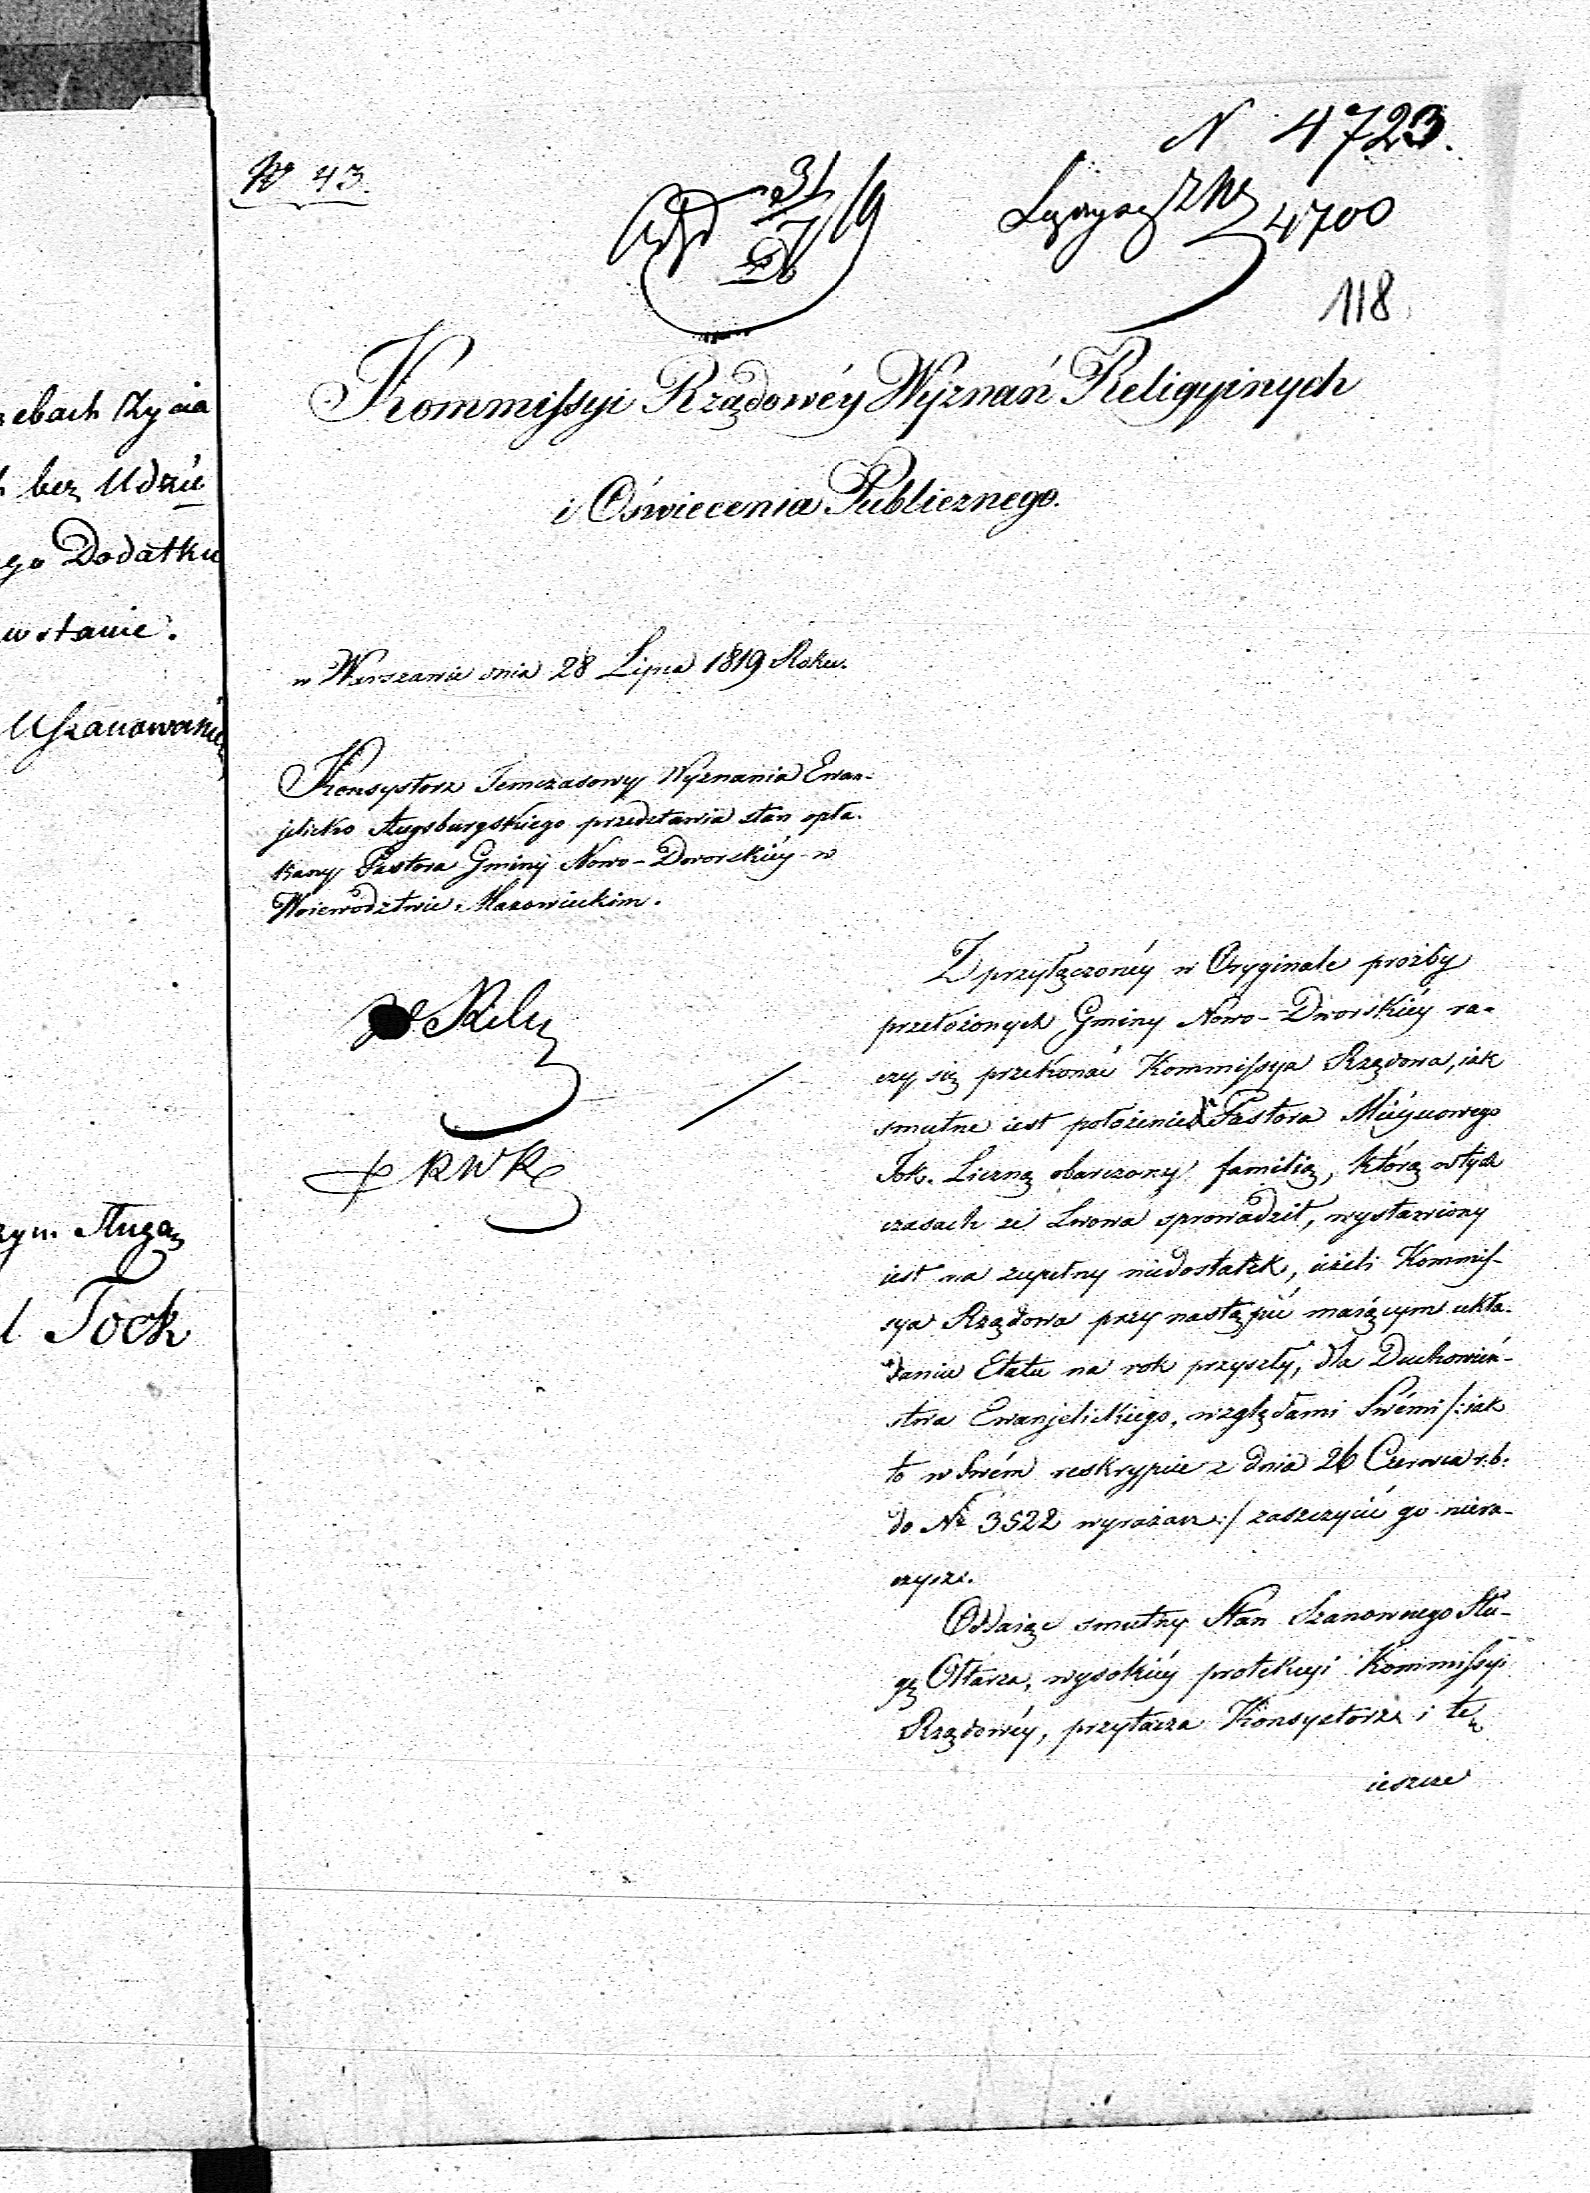 ebach Życia
bez Udzie
go Dodatku
w stanie.
Uszanowaniem
Sługą
Tock
N 4723.
№ 43.
31/7 19
4700
118
Kommissyi Rządowéy Wyznań Religyinych
i Oświecenia Publicznego.
w Warszawie dnia 28 Lipca 1819 Roku.
Konsystorz Temczasowy Wyznania Ewan-
jelicko Augsburgskiego przedstawia stan opła-
kany Pastora Gminy Nowo-Dworskiéy w
Woiewodztwie Mazowieckim.
Z przyłączonéy w Oryginale prozby
przełożonych Gminy Nowo-Dworskiéy ra-
czy się przekonać Kommissya Rządowa, iak
smutne iest położenie Pastora Mieyscowego
Tok. Liczną obarczony familią, którą w tych
czasach ze Lwowa sprowadził, wystawiony
iest na zupełny niedostatek, ieżeli Kommis-
sya Rządowa przy nastąpić maiącym ukła-
daniu Etatu na rok przyszły, dla Duchowień-
stwa Ewanjelickiego, względami Swémi /: iak
to w Swém reskrypcie z dnia 26 Czerwca r. b.
do № 3522 wyrażasz :/ zaszczycić go niera-
czysz.
Oddaiąc smutny Stan Szanownego Słu-
gę Ołtarza, wysokiéy protekcyi Kommissyi
Rządowéy, przyłacza Konsystorz i tę
ieszcze